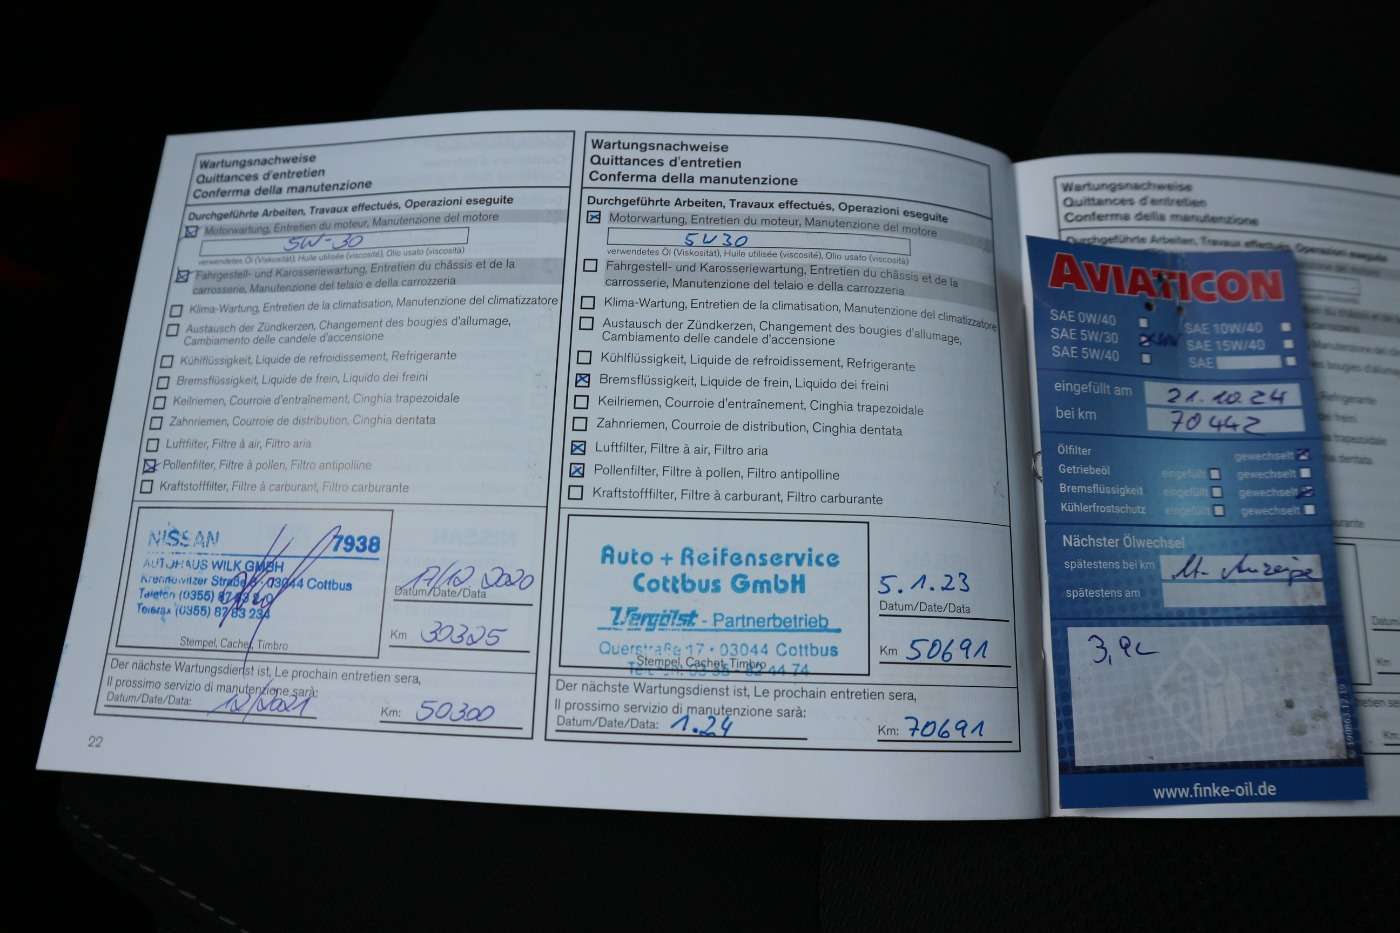 Wartungsnachweise
Quittances d'entretien
Conferma della manutenzione
Durchgeführte Arbeiten, Travaux effectués, Operazioni eseguite
Motorwartung, Entretien du moteur, Manutenzione del motore
5W-30
verwendetes Öl (Viskosität), Huile utilisée (viscosité), Olio usato (viscosità)
Fahrgestell- und Karosseriewartung, Entretien du châssis et de la
carrosserie, Manutenzione del telaio e della carrozzeria
Klima-Wartung, Entretien de la climatisation, Manutenzione del climatizzatore
Austausch der Zündkerzen, Changement des bougies d'allumage,
Cambiamento delle candele d'accensione
Kühlflüssigkeit, Liquide de refroidissement, Refrigerante
Bremsflüssigkeit, Liquide de frein, Liquido dei freini
Keilriemen, Courroie d'entraînement, Cinghia trapezoidale
Zahnriemen, Courroie de distribution, Cinghia dentata
Luftfilter, Filtre à air, Filtro aria
Pollenfilter, Filtre à pollen, Filtro antipolline
Kraftstofffilter, Filtre à carburant, Filtro carburante
NISSAN 7938
AUTOHAUS WILK GMBH
03044 Cottbus
Telefon (0355)
Telefax (0355) 87 83 234
Stempel, Cachet, Timbro
17/12 2020
Datum/Date/Data
Km 30325
Der nächste Wartungsdienst ist, Le prochain entretien sera,
Il prossimo servizio di manutenzione sarà:
Datum/Date/Data: 12/2021 Km: 50300
22
Wartungsnachweise
Quittances d'entretien
Conferma della manutenzione
Durchgeführte Arbeiten, Travaux effectués, Operazioni eseguite
Motorwartung, Entretien du moteur, Manutenzione del motore
5W30
verwendetes Öl (Viskosität), Huile utilisée (viscosité), Olio usato (viscosità)
Fahrgestell- und Karosseriewartung, Entretien du châssis et de la
carrosserie, Manutenzione del telaio e della carrozzeria
Klima-Wartung, Entretien de la climatisation, Manutenzione del climatizzatore
Austausch der Zündkerzen, Changement des bougies d'allumage,
Cambiamento delle candele d'accensione
Kühlflüssigkeit, Liquide de refroidissement, Refrigerante
Bremsflüssigkeit, Liquide de frein, Liquido dei freini
Keilriemen, Courroie d'entraînement, Cinghia trapezoidale
Zahnriemen, Courroie de distribution, Cinghia dentata
Luftfilter, Filtre à air, Filtro aria
Pollenfilter, Filtre à pollen, Filtro antipolline
Kraftstofffilter, Filtre à carburant, Filtro carburante
Auto + Reifenservice
Cottbus GmbH
Vergölst - Partnerbetrieb
Querstraße 17 · 03044 Cottbus
Stempel, Cachet, Timbro
5.1.23
Datum/Date/Data
Km 50691
Der nächste Wartungsdienst ist, Le prochain entretien sera,
Il prossimo servizio di manutenzione sarà:
Datum/Date/Data: 1.24 Km: 70691
Wartungsnachweise
Quittances d'entretien
Conferma della manutenzione
AVIATICON
SAE 0W/40 SAE 10W/40
SAE 5W/30 SAE 15W/40
SAE 5W/40 SAE
eingefüllt am 21.10.24
bei km 70442
Ölfilter gewechselt
Getriebeöl eingefüllt gewechselt
Bremsflüssigkeit eingefüllt gewechselt
Kühlerfrostschutz eingefüllt gewechselt
Nächster Ölwechsel
spätestens bei km
spätestens am
www.finke-oil.de